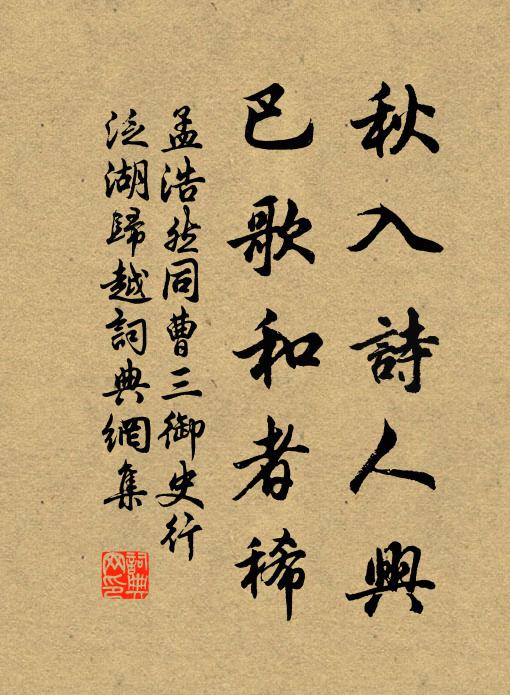 秋入詩人興
巴歌和者稀
孟浩然同曹三御史行
泛湖歸越詞典網集
詞典
网印